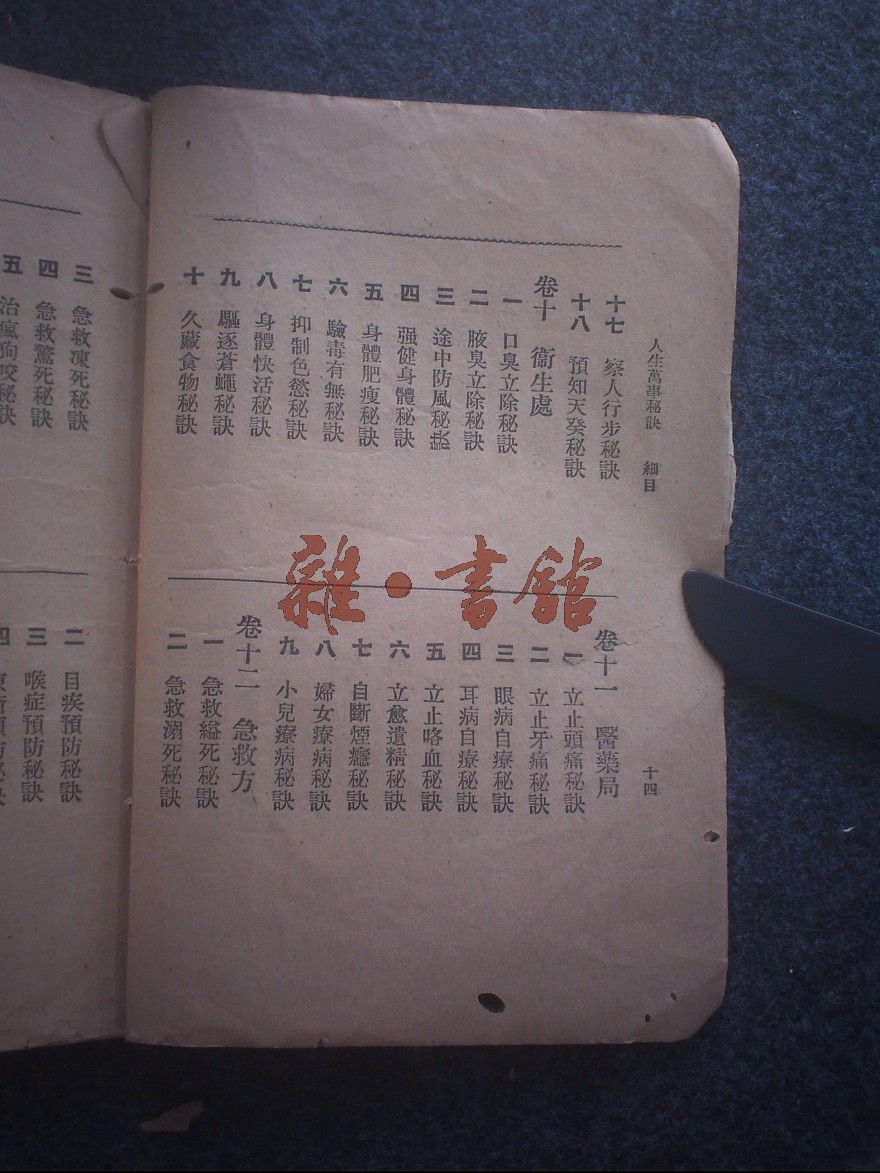 人生萬事秘訣　細目
十四
十七　察人行步秘訣
十八　預知天癸秘訣
卷十　衞生處
一　口臭立除秘訣
二　腋臭立除秘訣
三　途中防風秘訣
四　强健身體秘訣
五　身體肥瘦秘訣
六　驗毒有無秘訣
七　抑制色慾秘訣
八　身體快活秘訣
九　驅逐蒼蠅秘訣
十　久藏食物秘訣
卷十一　醫藥局
一　立止頭痛秘訣
二　立止牙痛秘訣
三　眼病自療秘訣
四　耳病自療秘訣
五　立止咯血秘訣
六　立愈遺精秘訣
七　自斷煙癮秘訣
八　婦女療病秘訣
九　小兒療病秘訣
卷十二　急救方
一　急救縊死秘訣
二　急救溺死秘訣
三　急救凍死秘訣
四　急救驚死秘訣
五　治瘋狗咬秘訣
二　目疾預防秘訣
三　喉症預防秘訣
雜·書館